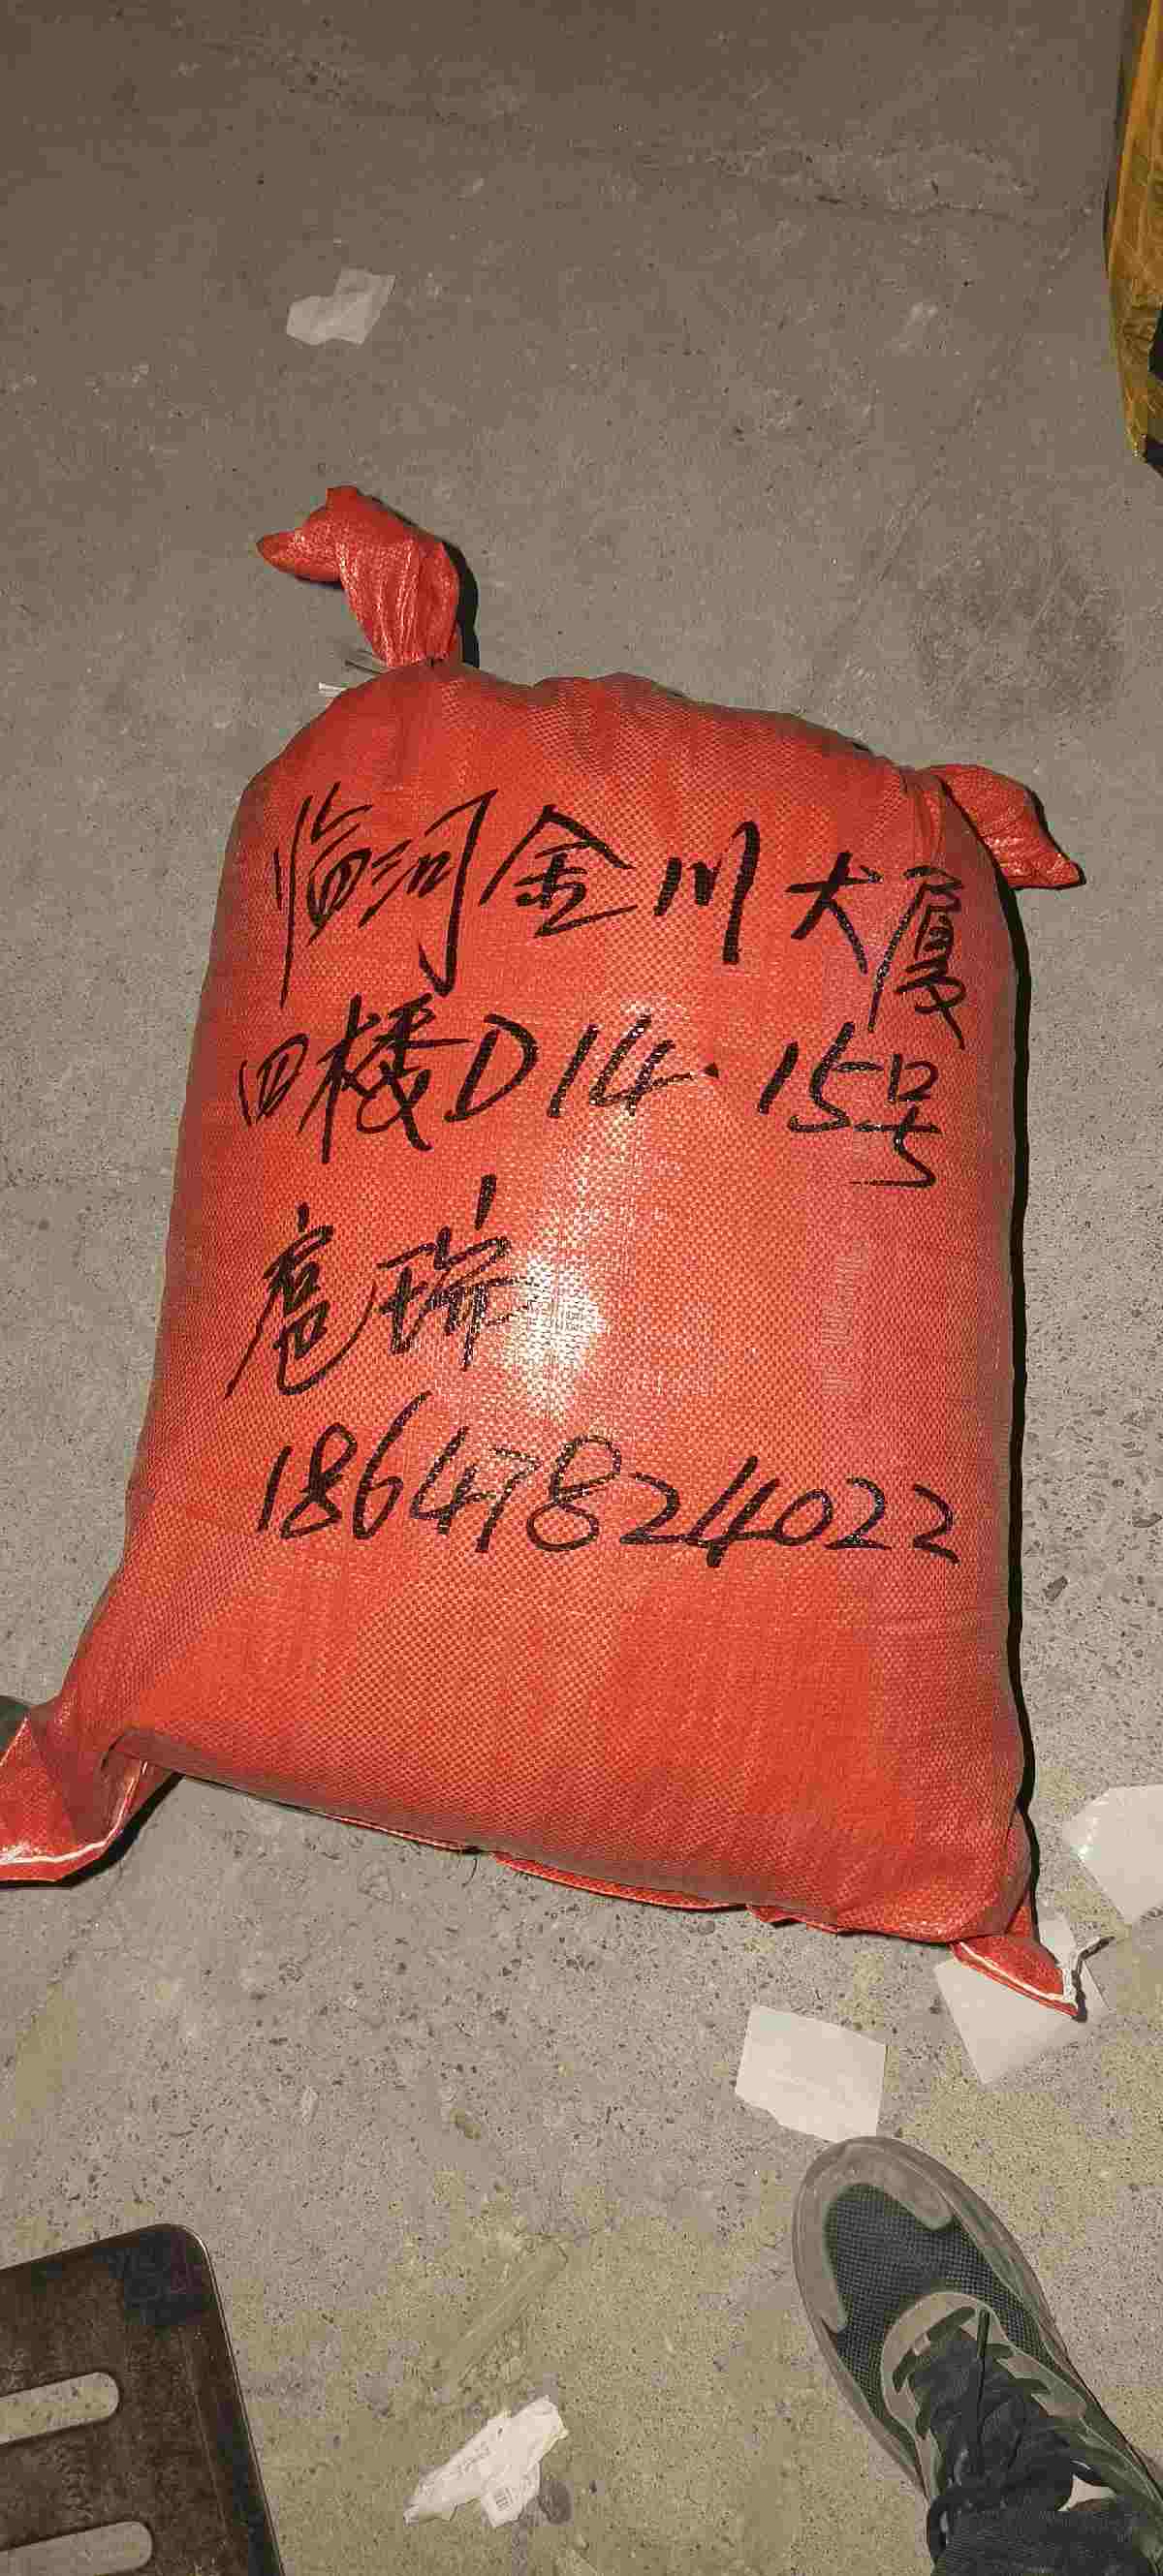 临河金川大厦
四楼D14·15号
扈瑞
18647824022